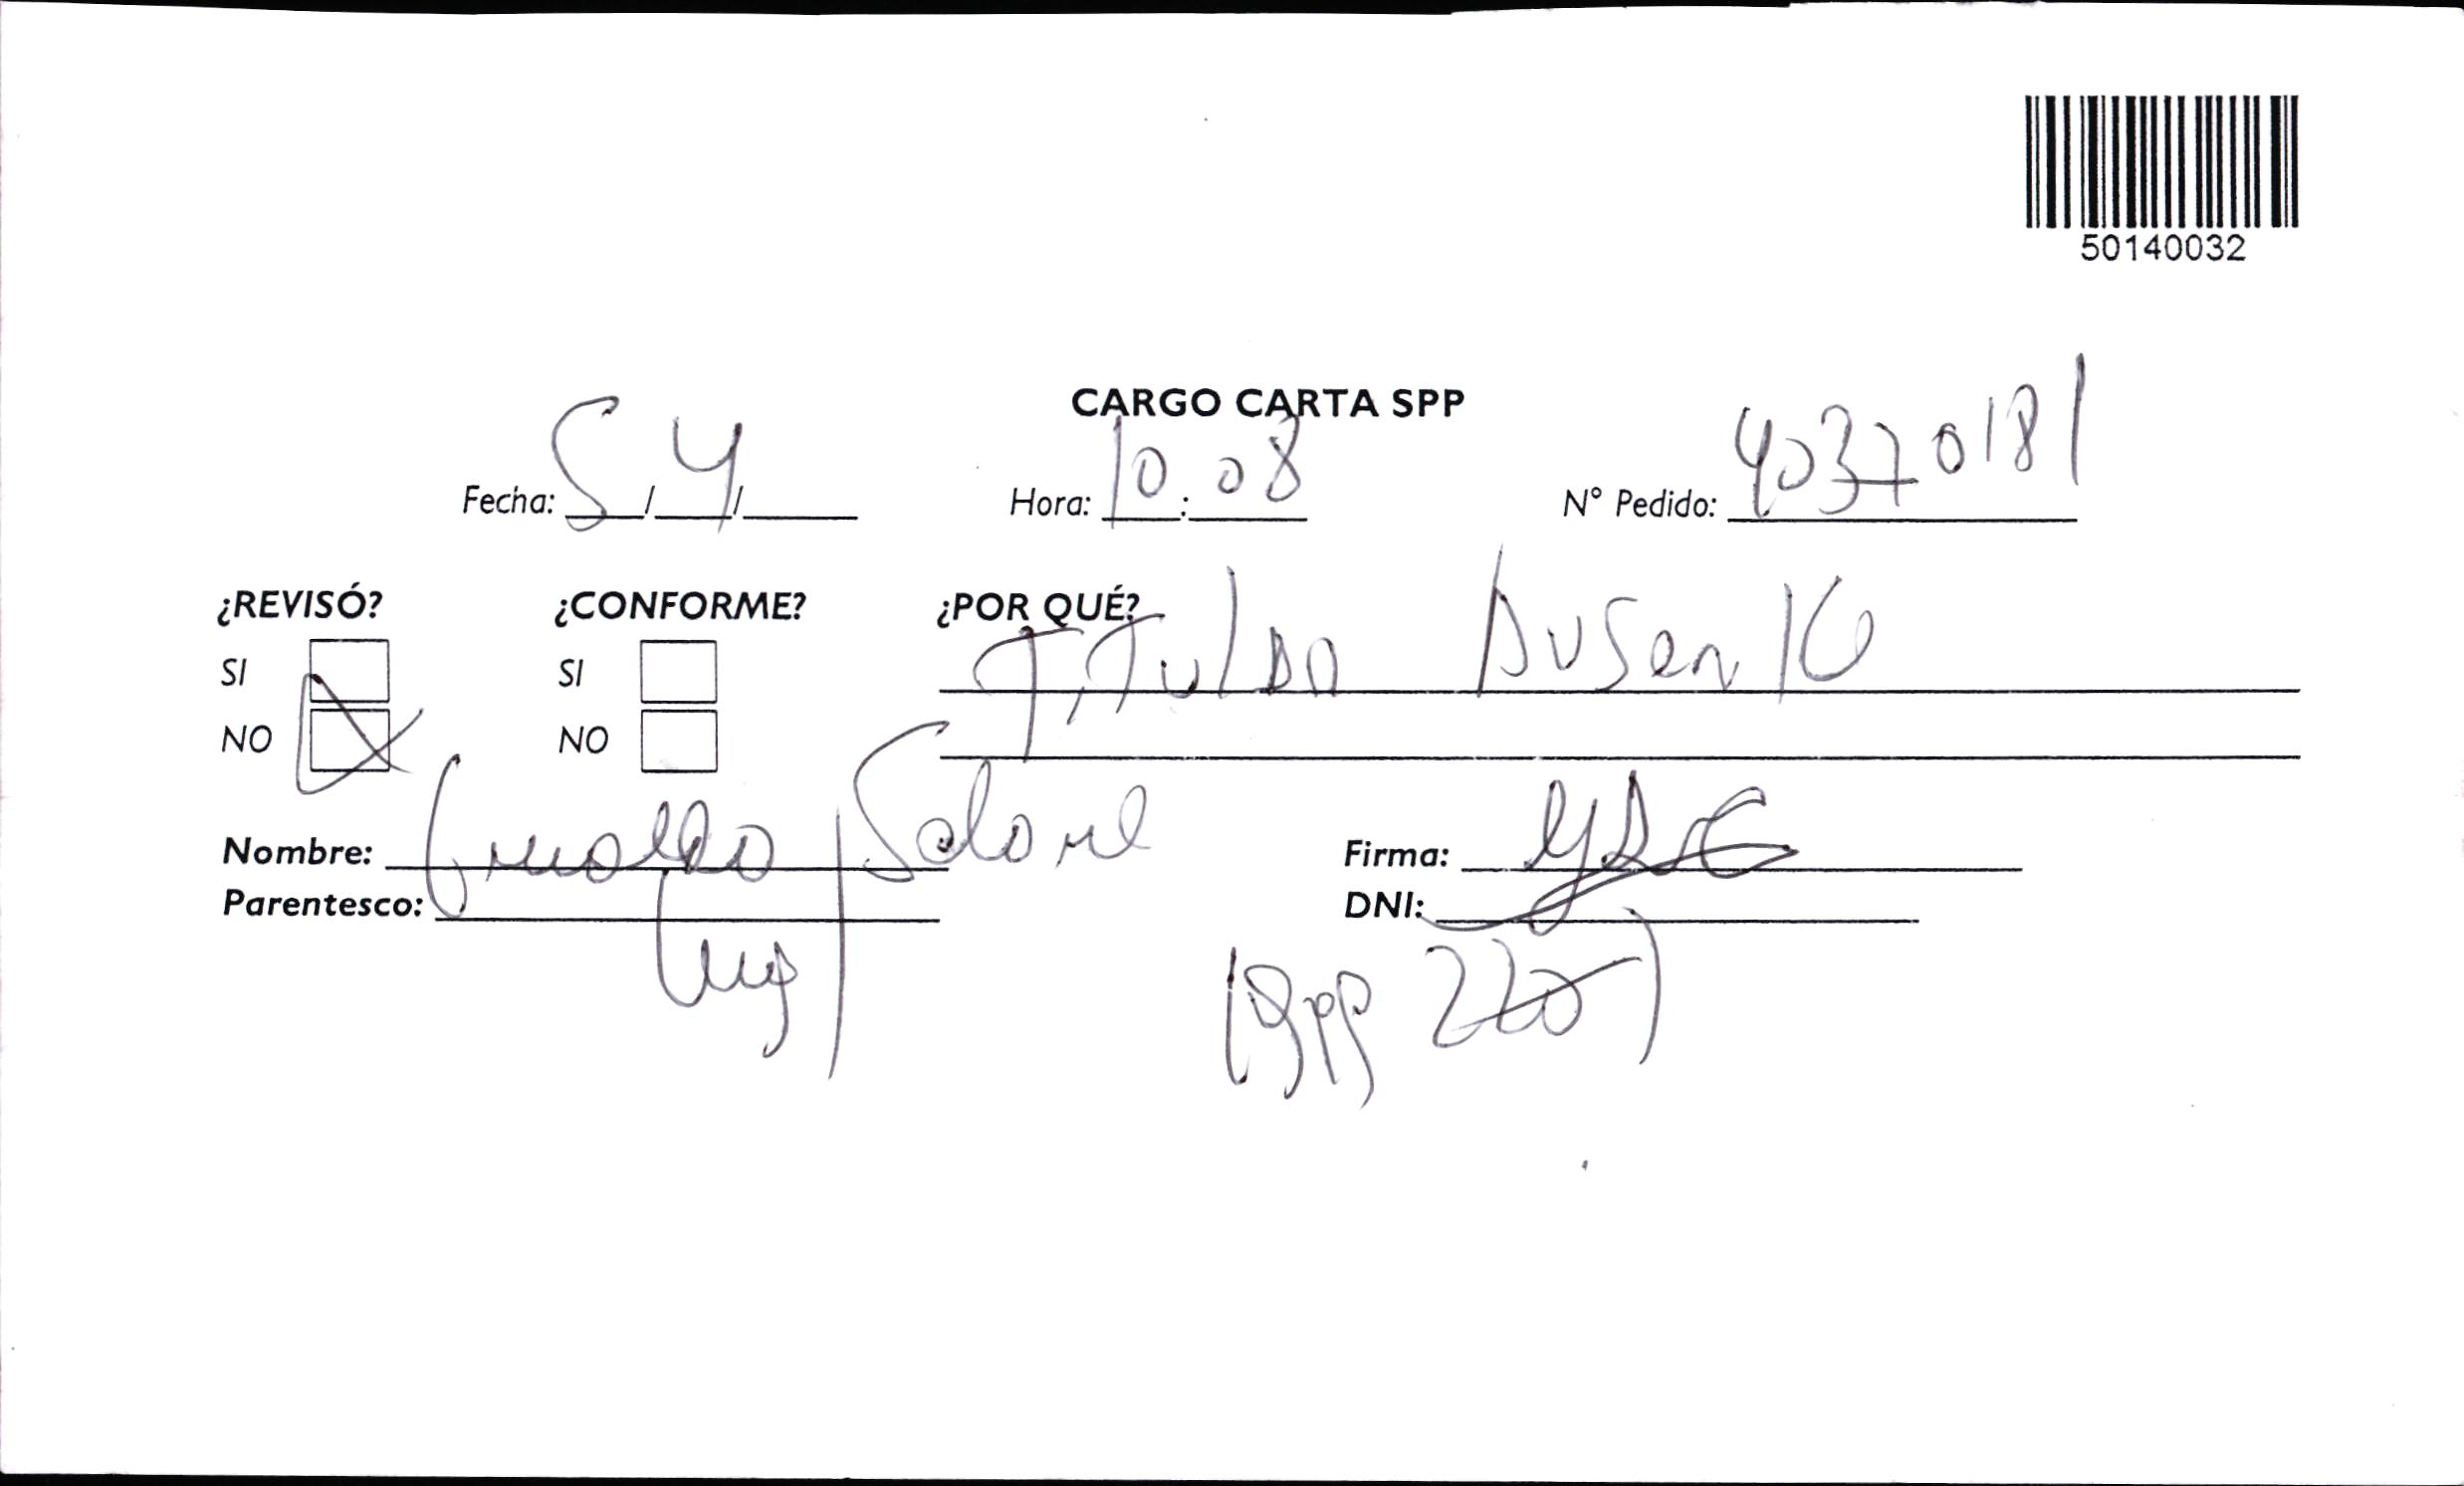 50140032
CARGO CARTA SPP
Fecha: 5/4/ Hora: 10:08 N° Pedido: 40370181
¿REVISÓ? ¿CONFORME? ¿POR QUÉ?
SI SI Titular Ausente
NO NO
Nombre: Salome Firma:
Parentesco: DNI: